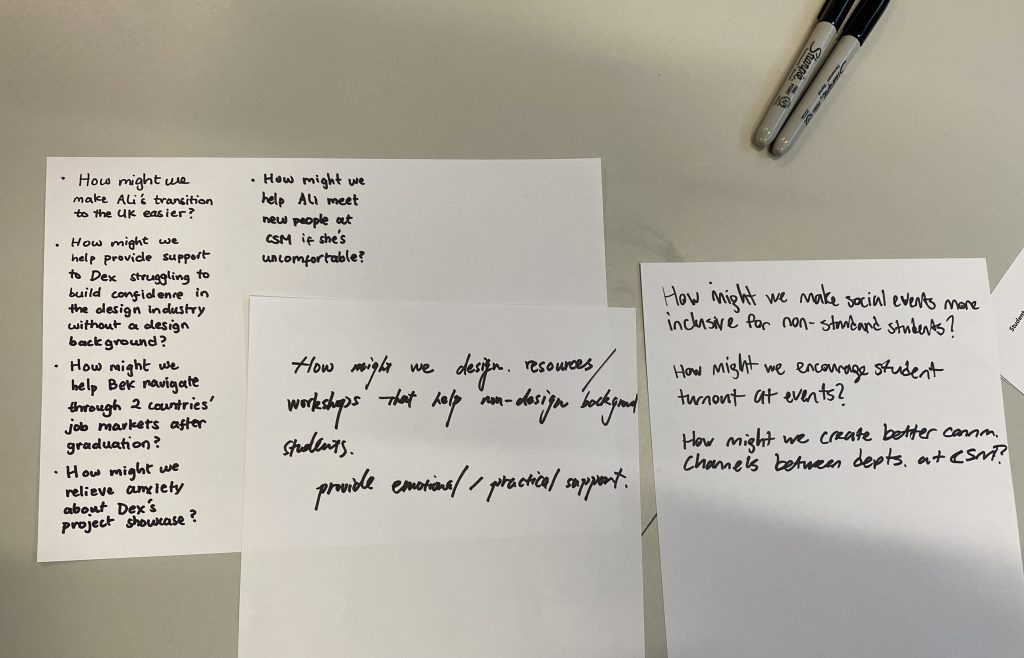 • How might we
make Ali's transition
to the UK easier?
• How might we
help provide support
to Dex struggling to
build confidence in
the design industry
without a design
background?
• How might we
help Bek navigate
through 2 countries'
job markets after
graduation?
• How might we
relieve anxiety
about Dex's
project showcase?
• How might we
help Ali meet
new people at
CSM if she's
uncomfortable?
How might we design. resources/
workshops that help non-design
students.
provide emotional / practical support.
How might we make social events more
inclusive for non-standard students?
How might we encourage student
turnout at events?
How might we create better comm.
channels between depts. at CSM?
Sharpie
Student